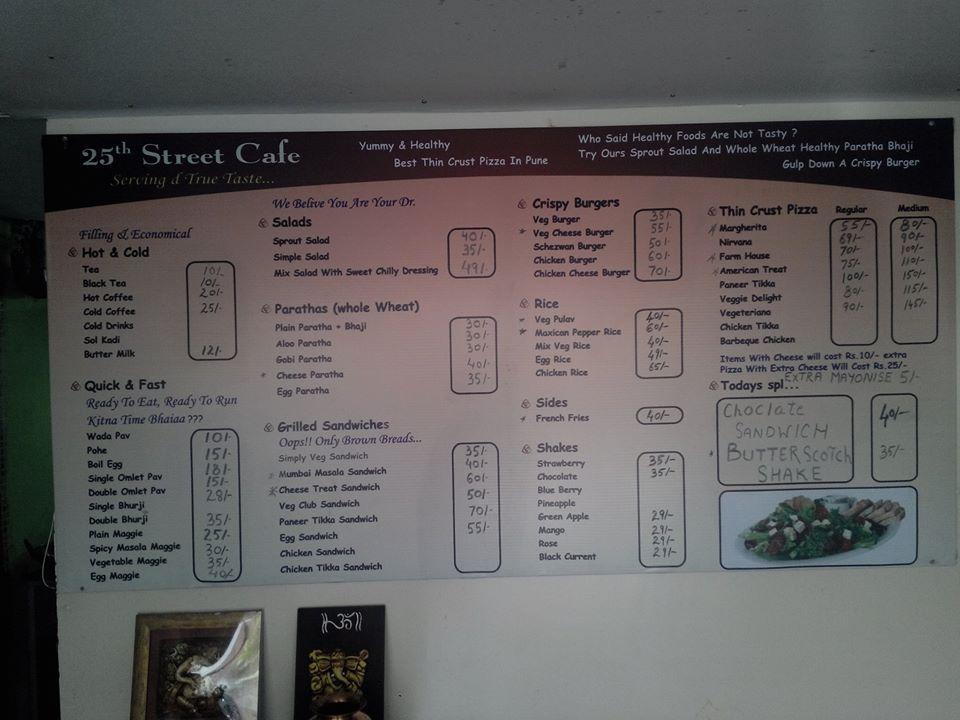 25th Street Cafe
Serving d True Taste...
Yummy & Healthy
Best Thin Crust Pizza In Pune
Who Said Healthy Foods Are Not Tasty ?
Try Ours Sprout Salad And Whole Wheat Healthy Paratha Bhaji
Gulp Down A Crispy Burger
Filling & Economical
Hot & Cold
Tea 10/-
Black Tea 10/-
Hot Coffee 20/-
Cold Coffee 25/-
Cold Drinks
Sol Kadi
Butter Milk 12/-
Quick & Fast
Ready To Eat, Ready To Run
Kitna Time Bhaiaa ???
Wada Pav 10/-
Pohe 15/-
Boil Egg 18/-
Single Omlet Pav 15/-
Double Omlet Pav 28/-
Single Bhurji
Double Bhurji 35/-
Plain Maggie 25/-
Spicy Masala Maggie 30/-
Vegetable Maggie 35/-
Egg Maggie 40/-
We Belive You Are Your Dr.
Salads
Sprout Salad 40/-
Simple Salad 35/-
Mix Salad With Sweet Chilly Dressing 49/-
Parathas (whole Wheat)
Plain Paratha + Bhaji 30/-
Aloo Paratha 30/-
Gobi Paratha 30/-
Cheese Paratha 40/-
Egg Paratha 35/-
Grilled Sandwiches
Oops!! Only Brown Breads...
Simply Veg Sandwich 35/-
Mumbai Masala Sandwich 40/-
Cheese Treat Sandwich 60/-
Veg Club Sandwich 50/-
Paneer Tikka Sandwich 70/-
Egg Sandwich 55/-
Chicken Sandwich
Chicken Tikka Sandwich
Crispy Burgers
Veg Burger 35/-
Veg Cheese Burger 55/-
Schezwan Burger 50/-
Chicken Burger 60/-
Chicken Cheese Burger 70/-
Rice
Veg Pulav 40/-
Maxican Pepper Rice 60/-
Mix Veg Rice 40/-
Egg Rice 49/-
Chicken Rice 65/-
Sides
French Fries 40/-
Shakes
Strawberry 35/-
Chocolate 35/-
Blue Berry
Pineapple
Green Apple 29/-
Mango 29/-
Rose 29/-
Black Current 29/-
Thin Crust Pizza Regular Medium
Margherita 55/- 80/-
Nirvana 69/- 90/-
Farm House 70/- 100/-
American Treat 75/- 110/-
Paneer Tikka 100/- 150/-
Veggie Delight 80/- 115/-
Vegeteriana 90/- 145/-
Chicken Tikka
Barbeque Chicken
Items With Cheese will cost Rs.10/- extra
Pizza With Extra Cheese Will Cost Rs.25/-
EXTRA MAYONISE 5/-
Todays spl...
Choclate 40/-
SANDWICH
BUTTERSCOTCH 35/-
SHAKE
ॐ